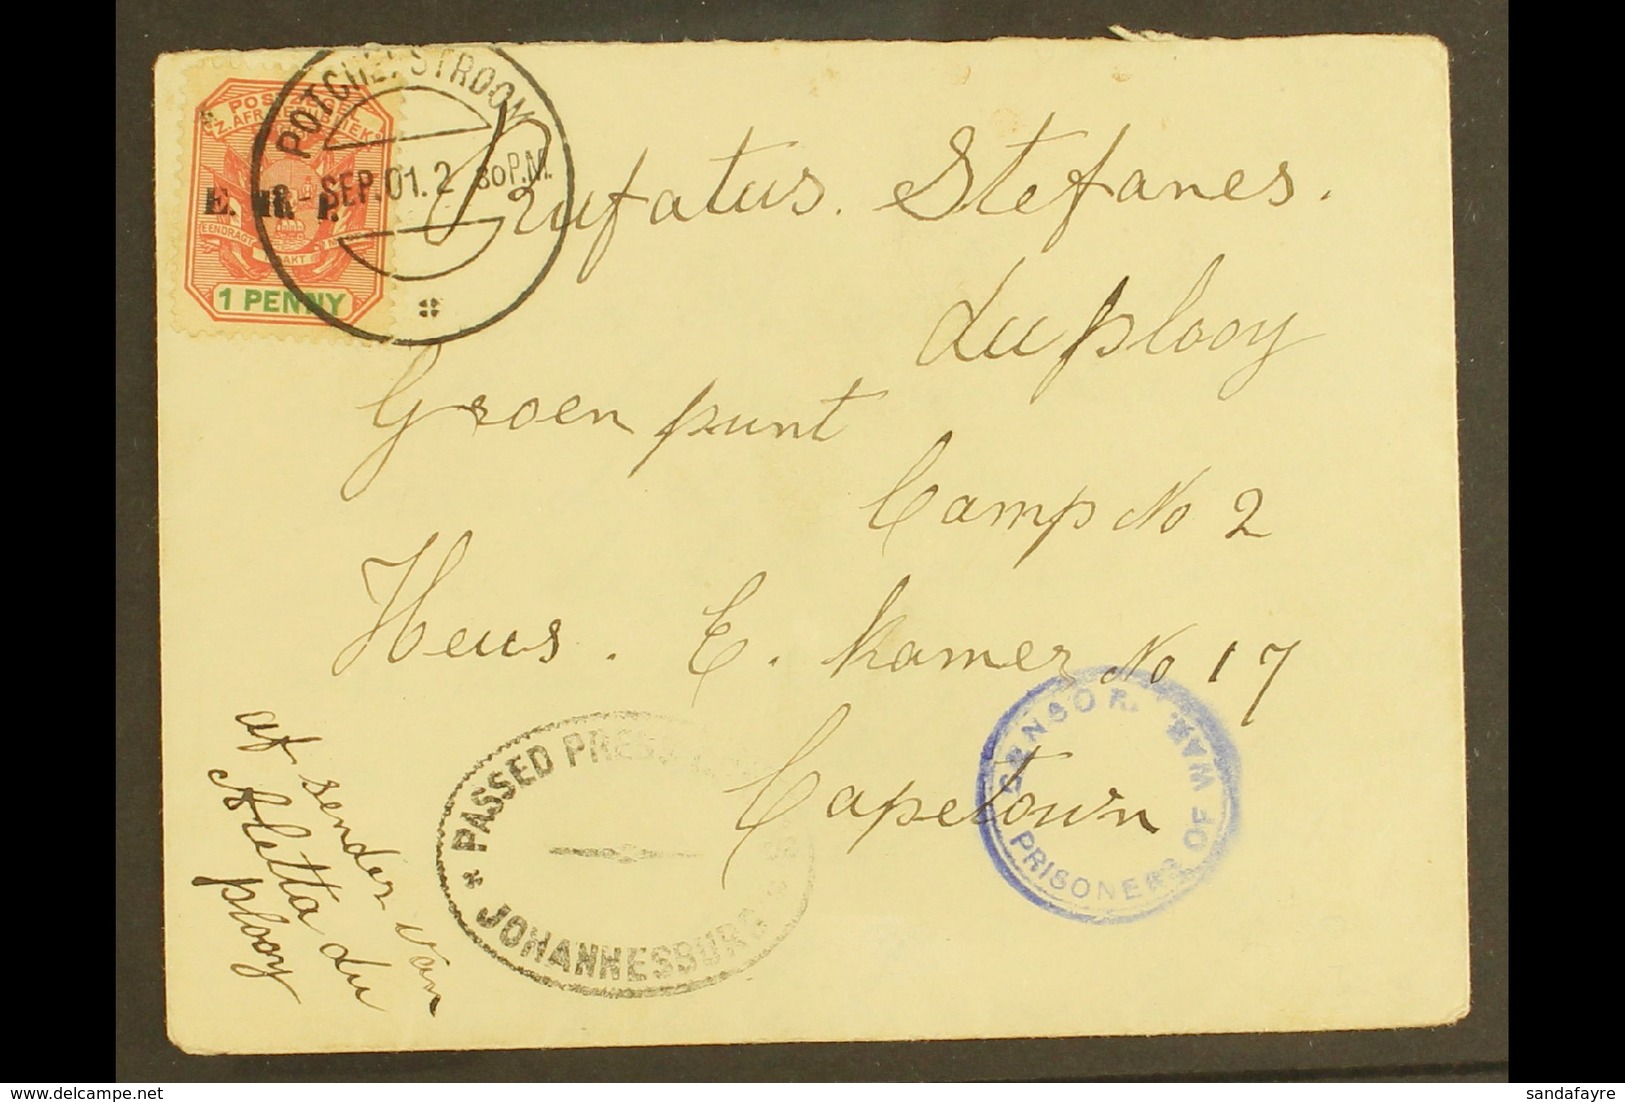 POSTZEGEL
Z.AFR.REPUBLIEK
E. R. I.
EENDRAGT
1 PENNY
POTCHEFSTROOM
SEP.01.2 30P.M.
Stefanes.
du plooy
Groenpunt
Camp No 2
Heus. E. Kamer No 17
Capetown
af sender van
Aletta du
plooy
PASSED PRESS
JOHANNESBURG
CENSOR.
PRISONERS OF WAR.
sandafayre